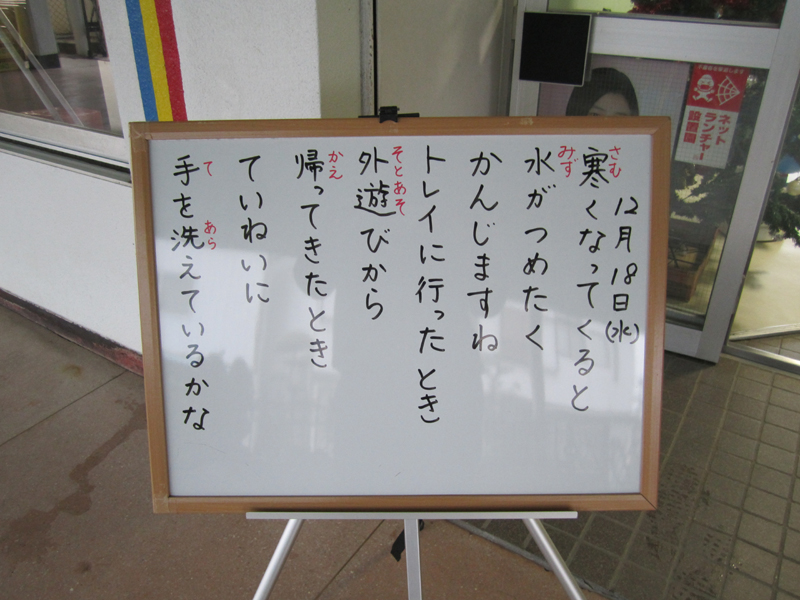 12月18日(水)
寒くなってくると
さむ
水がつめたく
みず
かんじますね
トレイに行ったとき
外遊びから
そとあそ
帰ってきたとき
かえ
ていねいに
手を洗えているかな
て あら
ネット
ランチャー
設置園